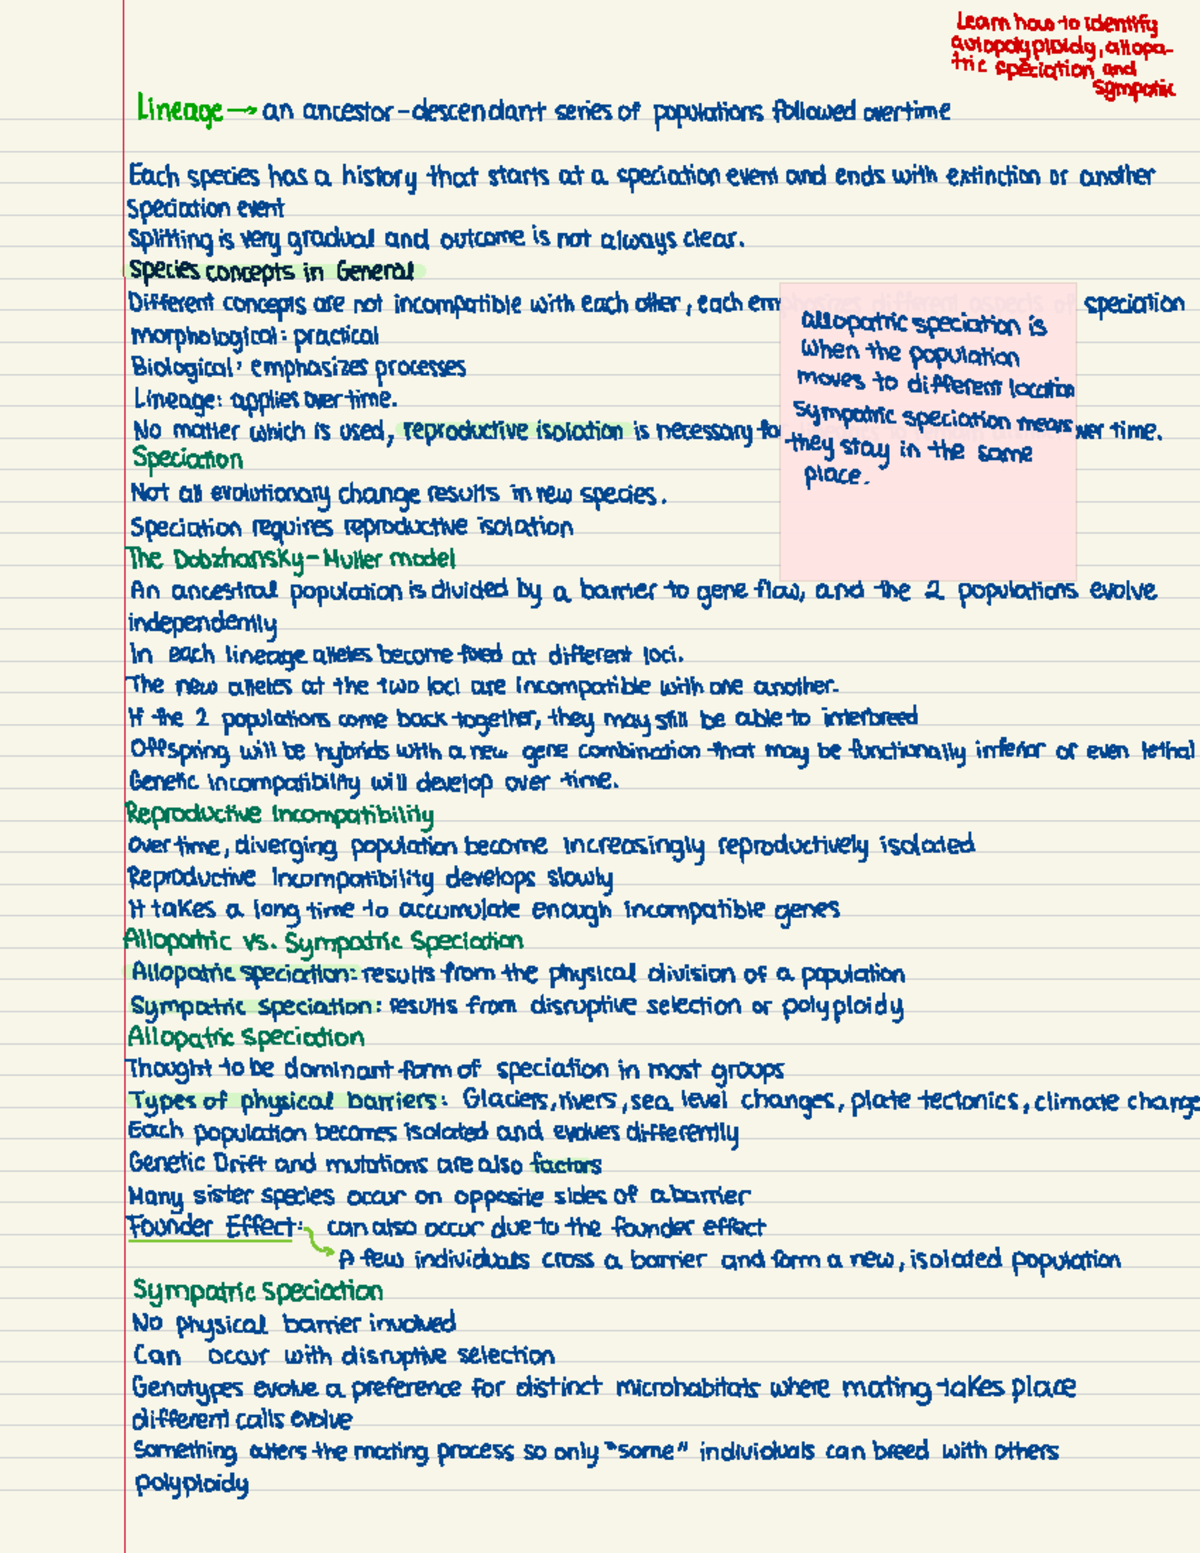 Learn how to identify
autopolyploidy, allopa-
tric speciation and
sympatric
Lineage → an ancestor-descendant series of populations followed overtime
Each species has a history that starts at a speciation event and ends with extinction or another
speciation event
Splitting is very gradual and outcome is not always clear.
Species concepts in General
Different concepts are not incompatible with each other, each emphasizes different aspects of speciation
morphological: practical
Biological: emphasizes processes
Lineage: applies over time.
No matter which is used, reproductive isolation is necessary for over time.
allopatric speciation is
when the population
moves to different location
sympatric speciation means
they stay in the same
place.
Speciation
Not all evolutionary change results in new species.
Speciation requires reproductive isolation
The Dobzhansky-Muller model
An ancestral population is divided by a barrier to gene flow, and the 2 populations evolve
independently
In each lineage alleles become fixed at different loci.
The new alleles at the two loci are incompatible with one another.
If the 2 populations come back together, they may still be able to interbreed
Offspring will be hybrids with a new gene combination that may be functionally inferior or even lethal
Genetic incompatibility will develop over time.
Reproductive Incompatibility
Over time, diverging population become increasingly reproductively isolated
Reproductive Incompatibility develops slowly
It takes a long time to accumulate enough incompatible genes
Allopatric vs. Sympatric Speciation
Allopatric speciation: results from the physical division of a population
Sympatric speciation: results from disruptive selection or polyploidy
Allopatric Speciation
Thought to be dominant form of speciation in most groups
Types of physical barriers: Glaciers, rivers, sea level changes, plate tectonics, climate change
Each population becomes isolated and evolves differently
Genetic Drift and mutations are also factors
Many sister species occur on opposite sides of a barrier
Founder Effect: can also occur due to the founder effect
A few individuals cross a barrier and form a new, isolated population
Sympatric Speciation
No physical barrier involved
Can occur with disruptive selection
Genotypes evolve a preference for distinct microhabitats where mating takes place
different calls evolve
Something alters the mating process so only "some" individuals can breed with others
polyploidy